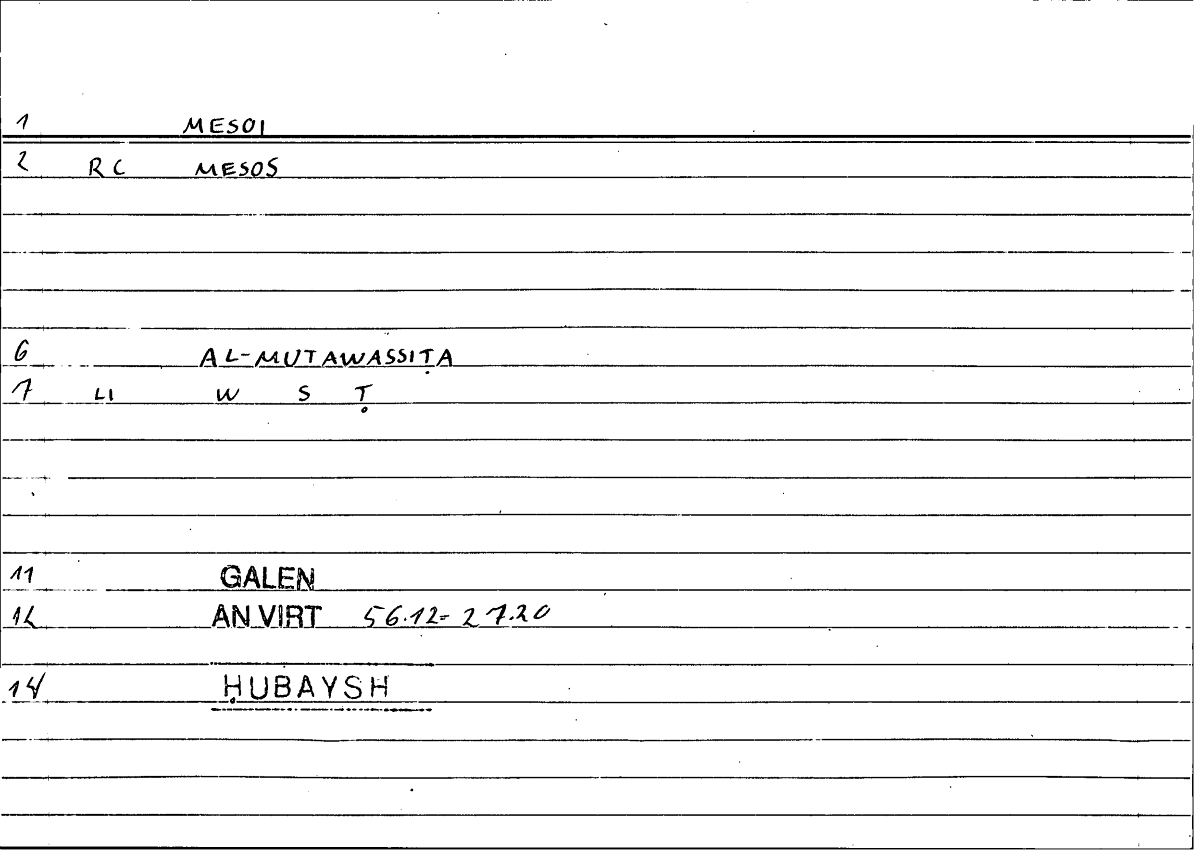 1 MESOI
2 RC MESOS
6 AL-MUTAWASSIṬA
7 LI W S Ṭ
11 GALEN
12 AN VIRT 56.12= 27.20
14 ḤUBAYSH